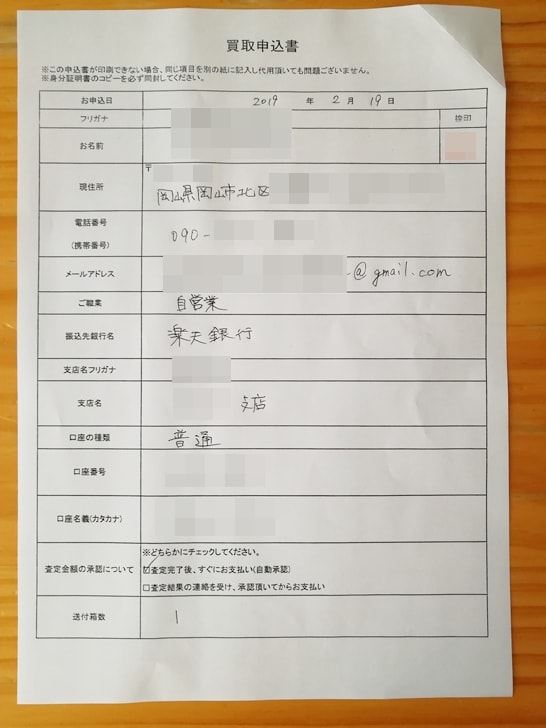 買取申込書
※この申込書が印刷できない場合、同じ項目を別の紙に記入し代用頂いても問題ございません。
※身分証明書のコピーを必ず同封してください。
お申込日 2019 年 2 月 19 日
フリガナ 捺印
お名前
〒
現住所 岡山県岡山市北区
電話番号
(携帯番号) 090-
メールアドレス @gmail.com
ご職業 自営業
振込先銀行名 楽天銀行
支店名フリガナ
支店名 支店
口座の種類 普通
口座番号
口座名義(カタカナ)
※どちらかにチェックしてください。
査定金額の承認について ☑査定完了後、すぐにお支払い(自動承認)
□査定結果の連絡を受け、承認頂いてからお支払い
送付箱数 1